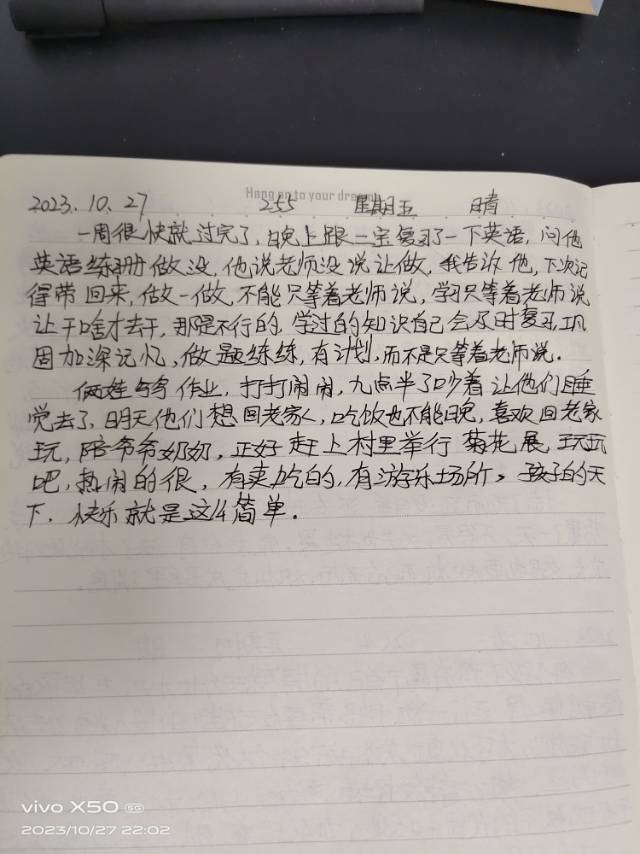 Hang on to your dream
2023.10.27 255 星期五 晴
一周很快就过完了,晚上跟一宝复习了一下英语,问他
英语练习册做没,他说老师没说让做,我告诉他,下次记
得带回来,做一做,不能只等着老师说,学习只等着老师说
让干啥才去干,那是不行的,学过的知识自己会及时复习,巩
固加深记忆,做题练练,有计划,而不是只等着老师说.
俩娃写写作业,打打闹闹,九点半了吵着让他们睡
觉去了,明天他们想回老家,吃饭也不能晚,喜欢回老家
玩,陪爷爷奶奶,正好赶上村里举行菊花展,玩玩
吧,热闹的很,有卖吃的,有游乐场所,孩子的天
下,快乐就是这么简单.
vivo X50 5G
2023/10/27 22:02